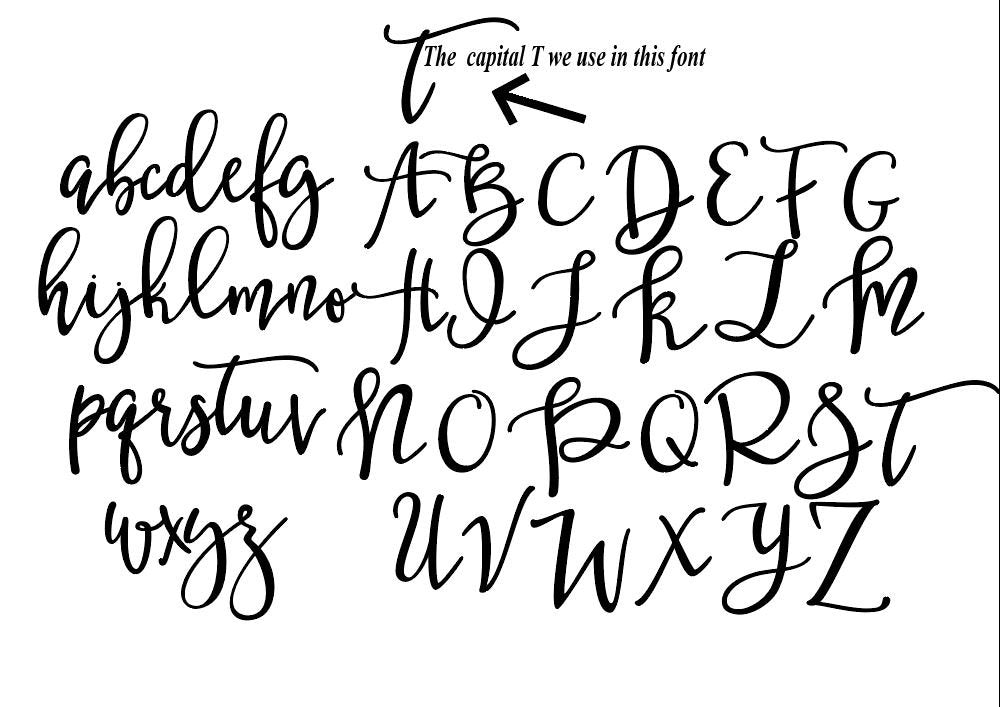 T
The capital T we use in this font
abcdefg ABCDEFG
hijklmno HIJKLM
pqrstuv NOPQRST
wxyz UVWXYZ